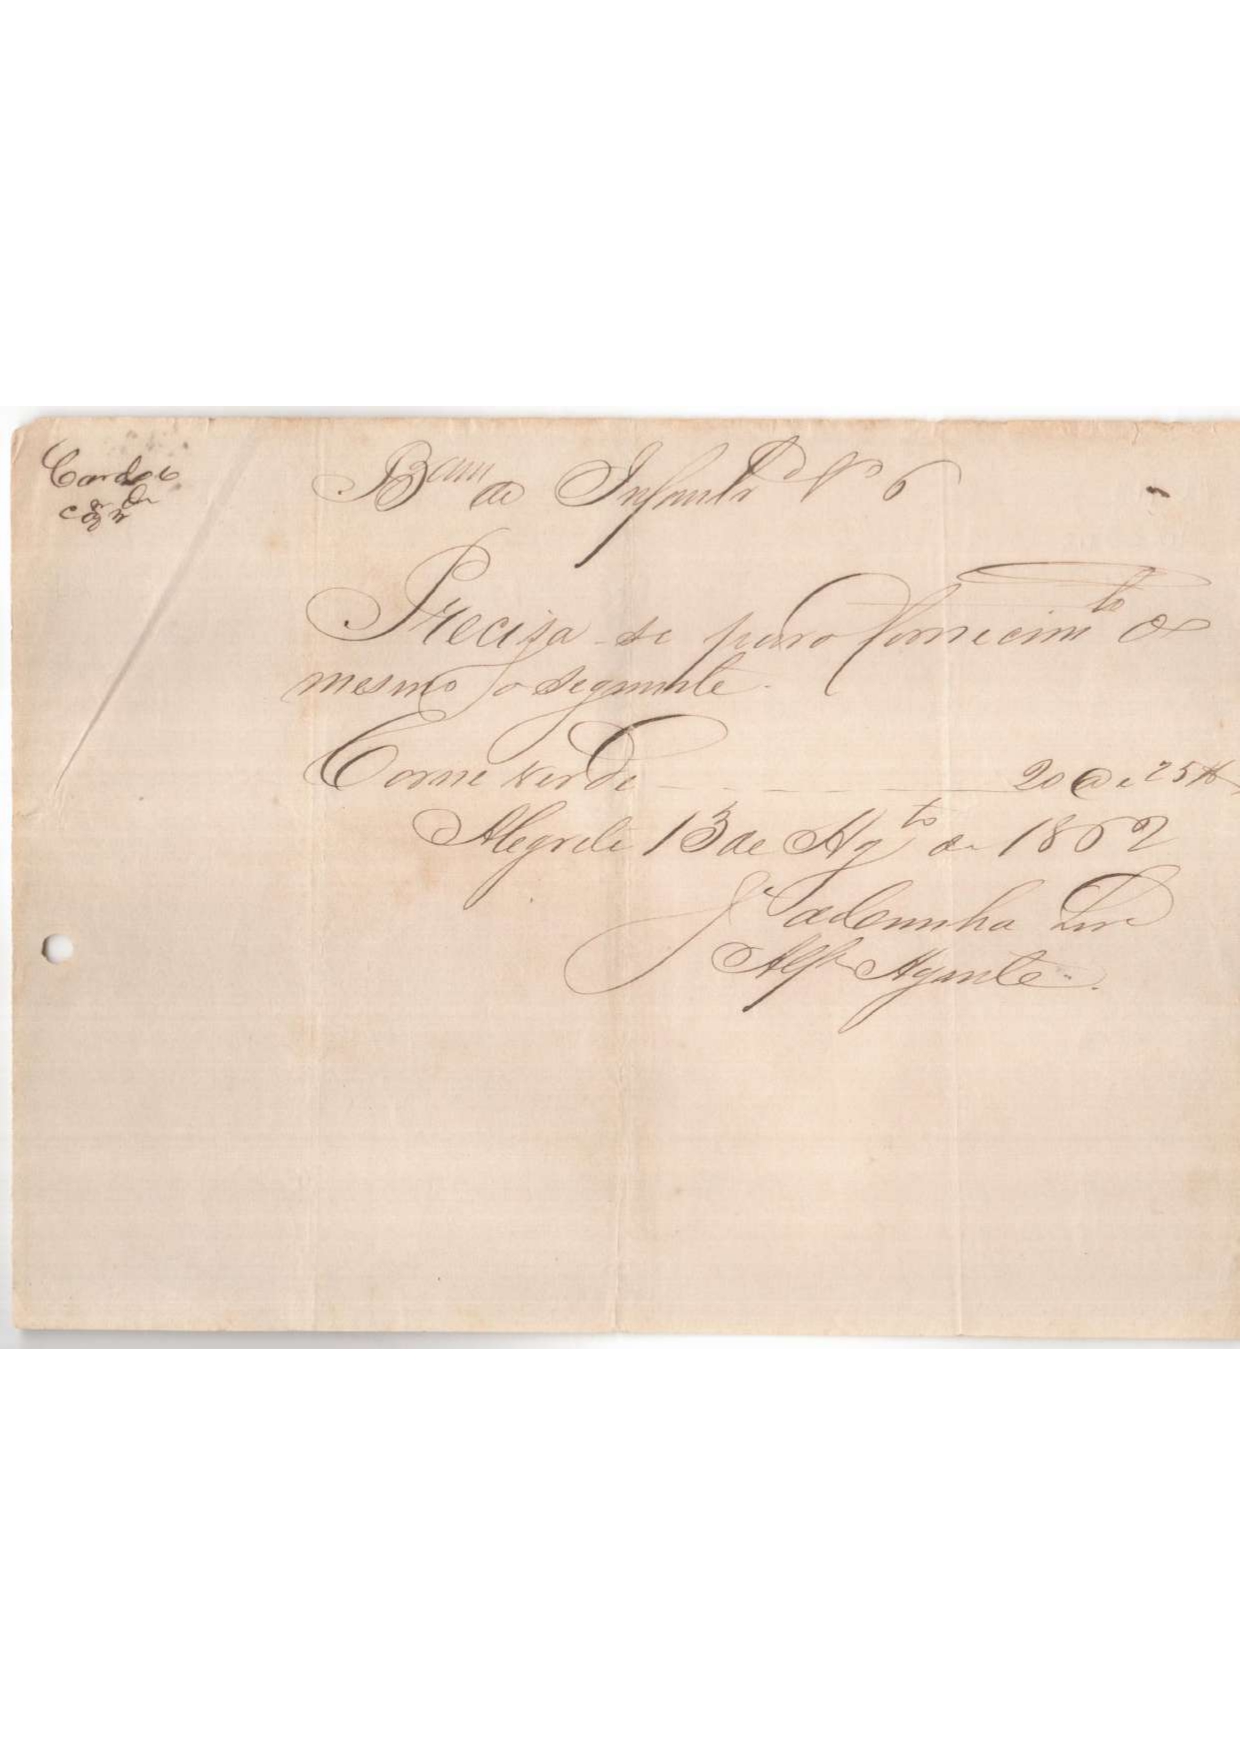 Cardozo
Bam de Infantra No 6
Preciza-se para fornecimto do
mesmo o seguinte.
Carne verde 20 @ e 25 lb
Alegrete 13 de Agto de 1862
J. da Cunha Lima
Alfs Agente.